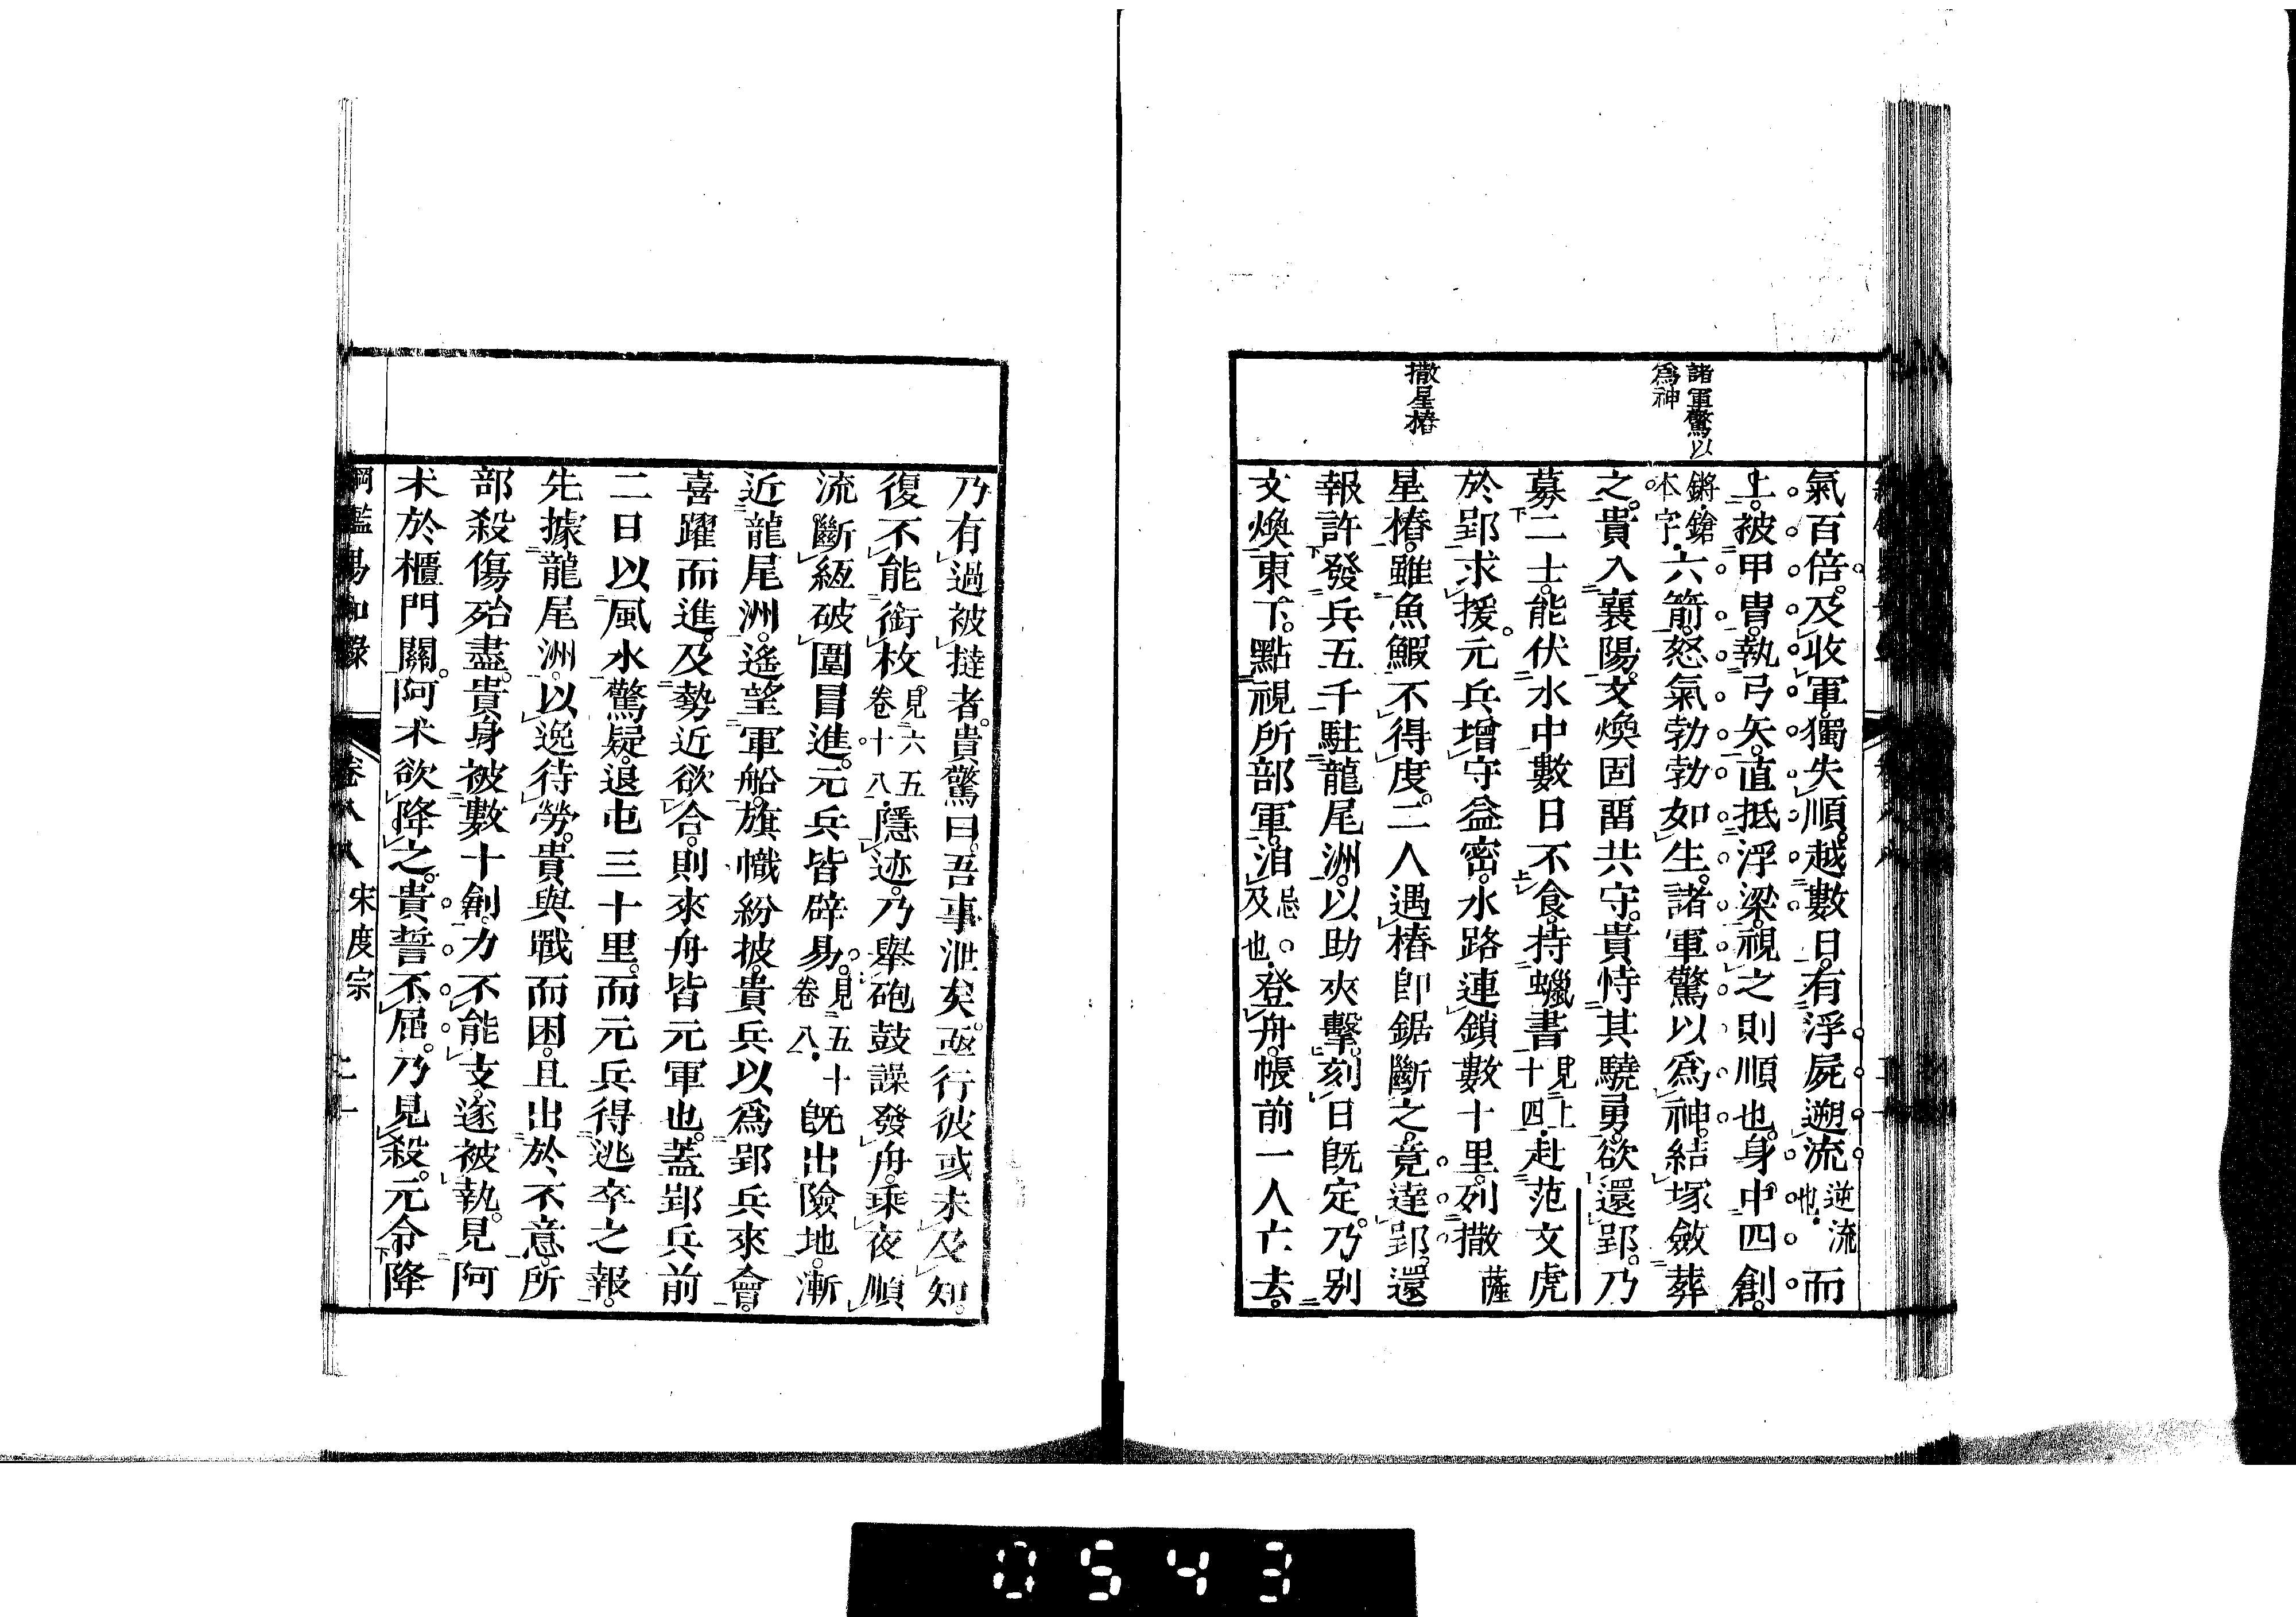 諸軍驚以
爲神
撒星樁
氣百倍。及收軍。獨失順。越數日。有浮屍遡流逆流也。而
上。被甲冑。執弓矢。直抵浮梁。視之則順也。身中四創。
鎗鎗本字。六箭。怒氣勃勃如生。諸軍驚以爲神。結塚斂葬
之。貴入襄陽。文煥固畱共守。貴恃其驍勇。欲還郢。乃
募二士。能伏水中數日不食。持蠟書見上十四。赴范文虎
於郢求援。元兵增守益密。水路連鎖數十里。列撒薩
星樁。雖魚鰕不得度。二人遇樁卽鋸斷之。竟達郢。還
報許發兵五千駐龍尾洲。以助夾擊。刻日旣定。乃別
文煥東下。點視所部軍。洎忌。及也。登舟。帳前一人亡去。
乃有過被撻者。貴驚曰。吾事泄矣。亟行彼或未及知。
復不能銜枚見六五卷十八。隱迹。乃舉砲鼓譟發舟。乘夜順
流。斷絚破圍冒進。元兵皆辟易。見五十卷八。旣出險地。漸
近龍尾洲。遙望軍船。旗幟紛披。貴兵以爲郢兵來會。
喜躍而進。及勢近欲合。則來舟皆元軍也。蓋郢兵前
二日以風水驚疑。退屯三十里。而元兵得逃卒之報。
先據龍尾洲。以逸待勞。貴與戰而困。且出於不意。所
部殺傷殆盡。貴身被數十創。力不能支。遂被執。見阿
朮於櫃門關。阿朮欲降之。貴誓不屈。乃見殺。元令降
綱鑑易知錄 卷八八 宋度宗
0543